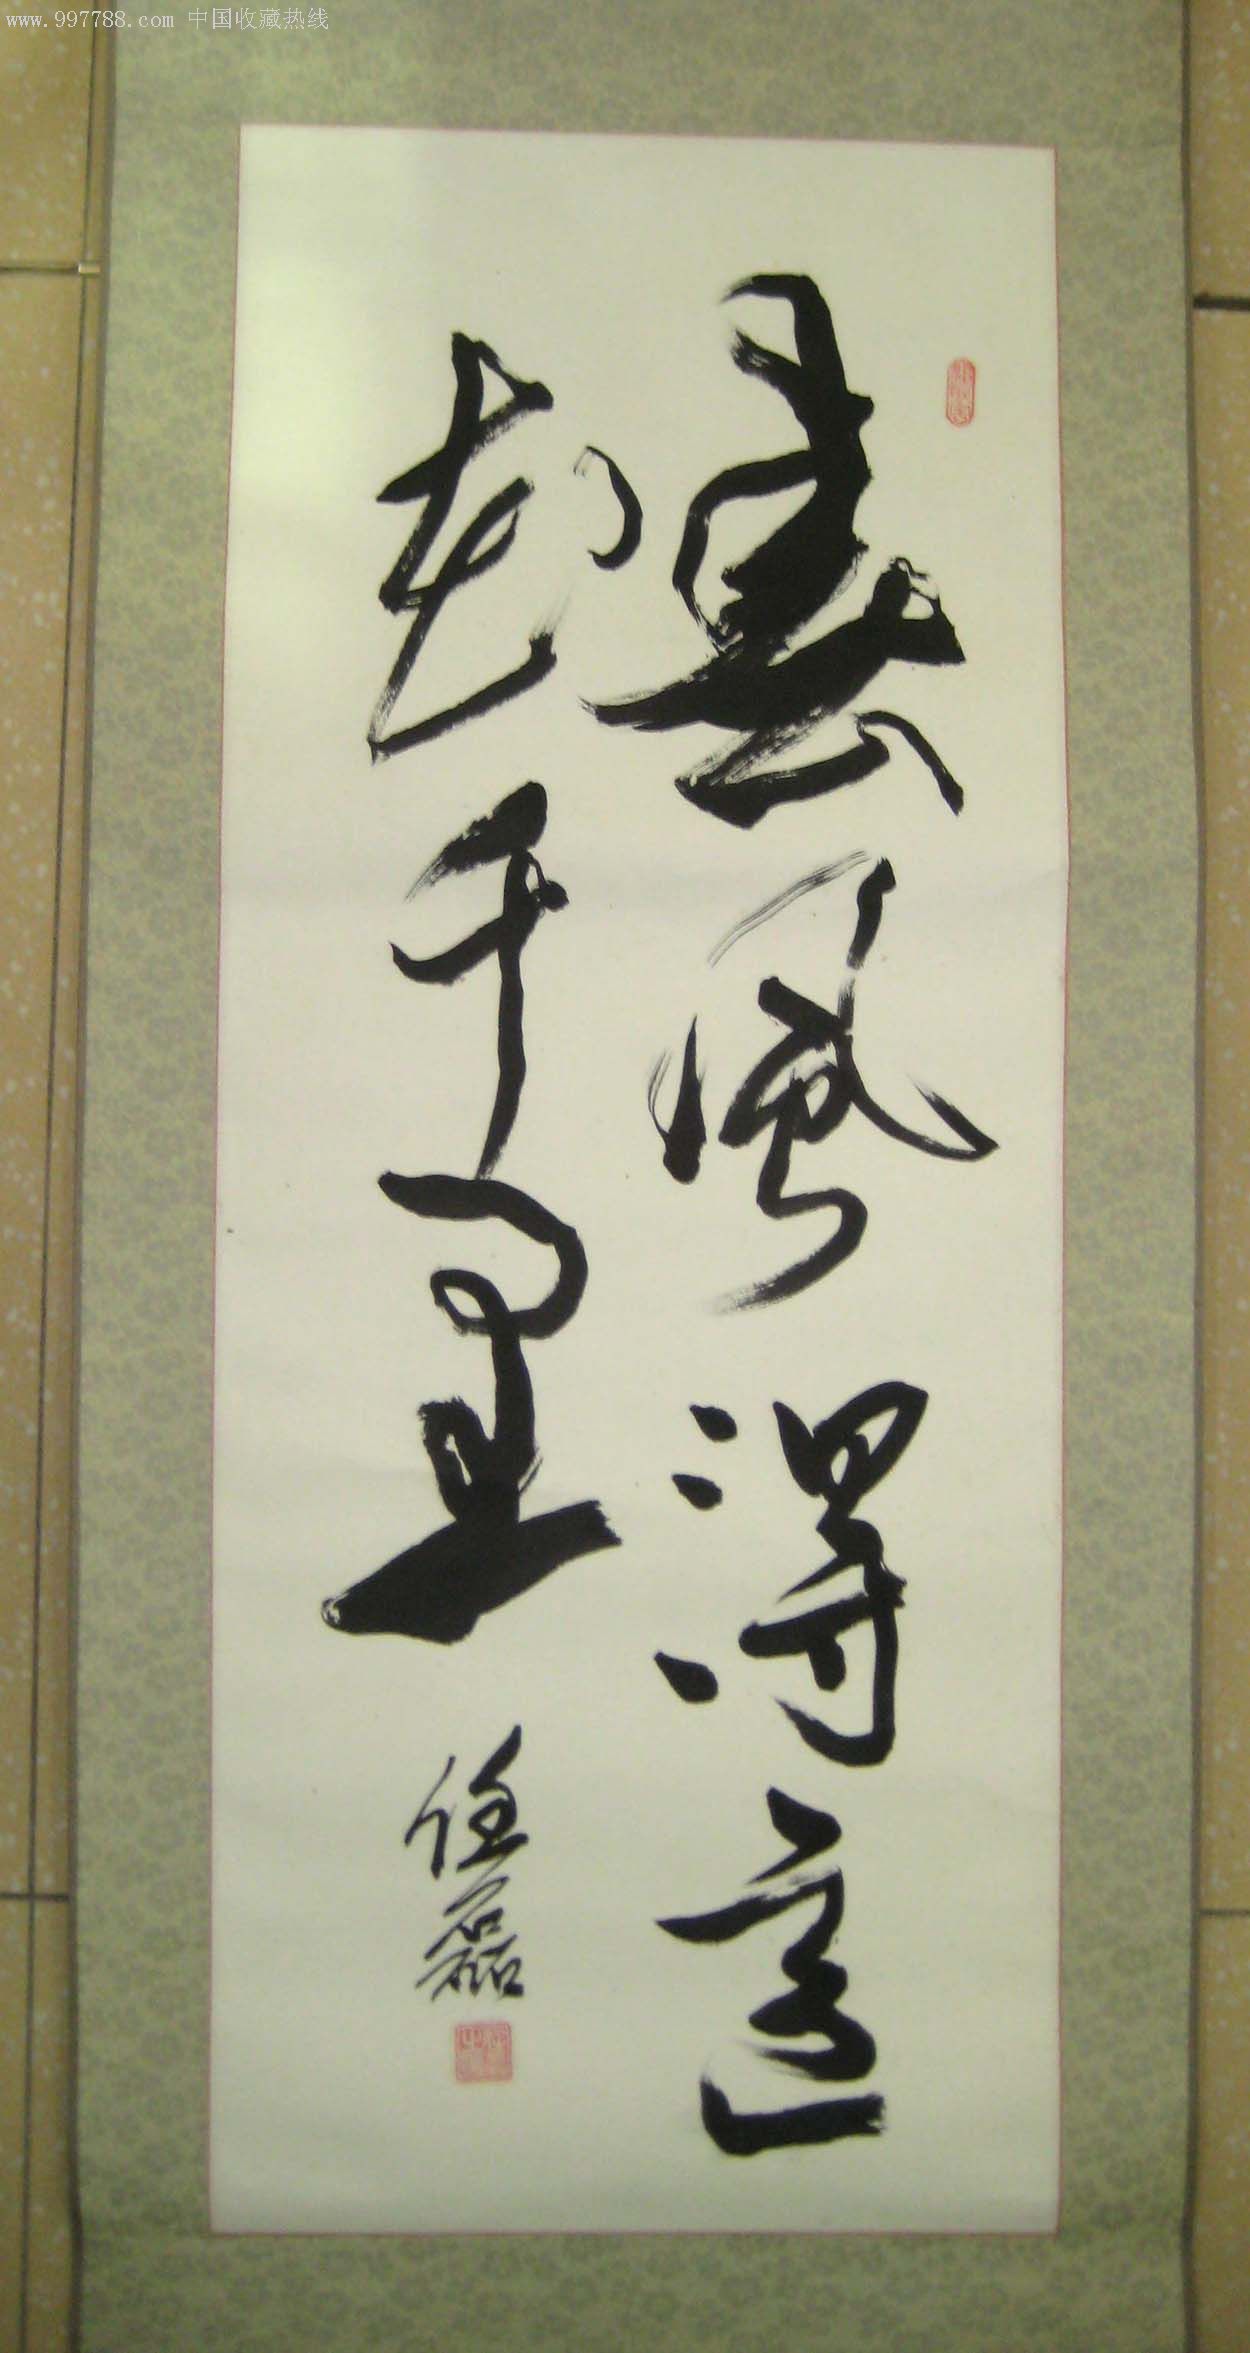 www.997788.com 中国收藏热线
風得意
千里
任磊